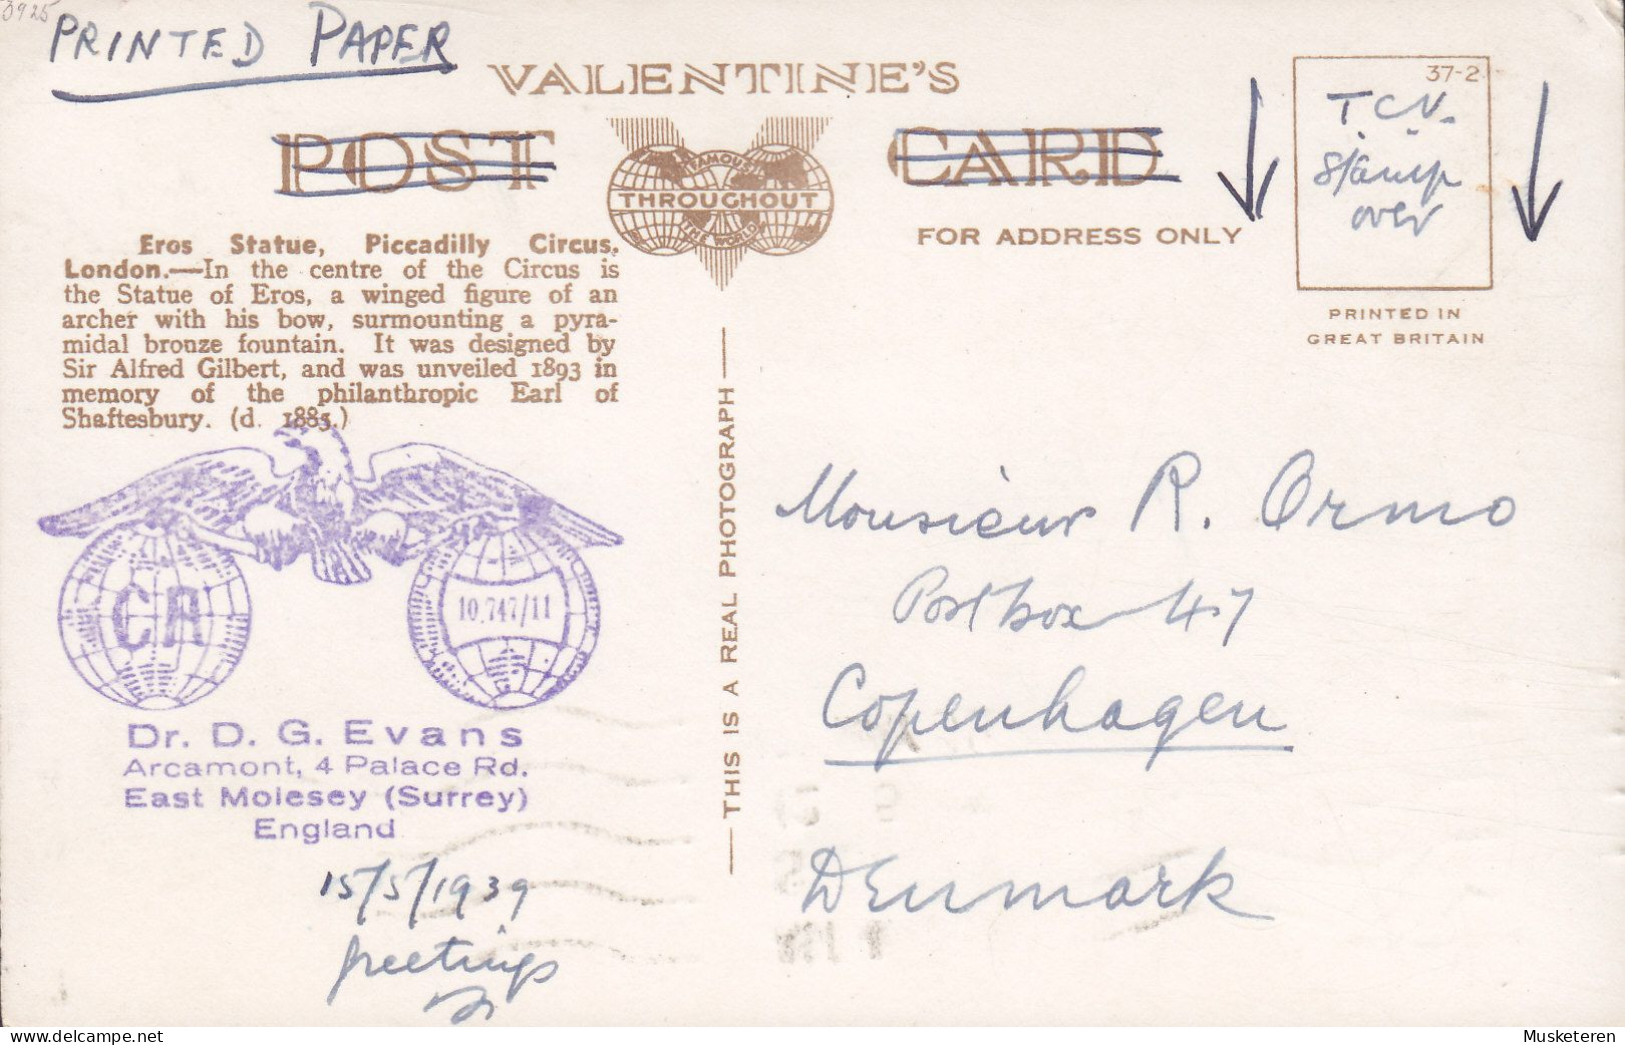 3925
PRINTED PAPER
VALENTINE'S
POST CARD
FAMOUS
THROUGHOUT
THE WORLD
FOR ADDRESS ONLY
37-2
T.C.V.
stamp
over
PRINTED IN
GREAT BRITAIN
Eros Statue, Piccadilly Circus,
London.—In the centre of the Circus is
the Statue of Eros, a winged figure of an
archer with his bow, surmounting a pyra-
midal bronze fountain. It was designed by
Sir Alfred Gilbert, and was unveiled 1893 in
memory of the philanthropic Earl of
Shaftesbury. (d. 1885.)
CA
10.747/11
Dr. D. G. Evans
Arcamont, 4 Palace Rd.
East Molesey (Surrey)
England
15/5/1939
greetings
THIS IS A REAL PHOTOGRAPH
Monsieur R. Ormo
Postbox 47
Copenhagen
Denmark
Musketeren